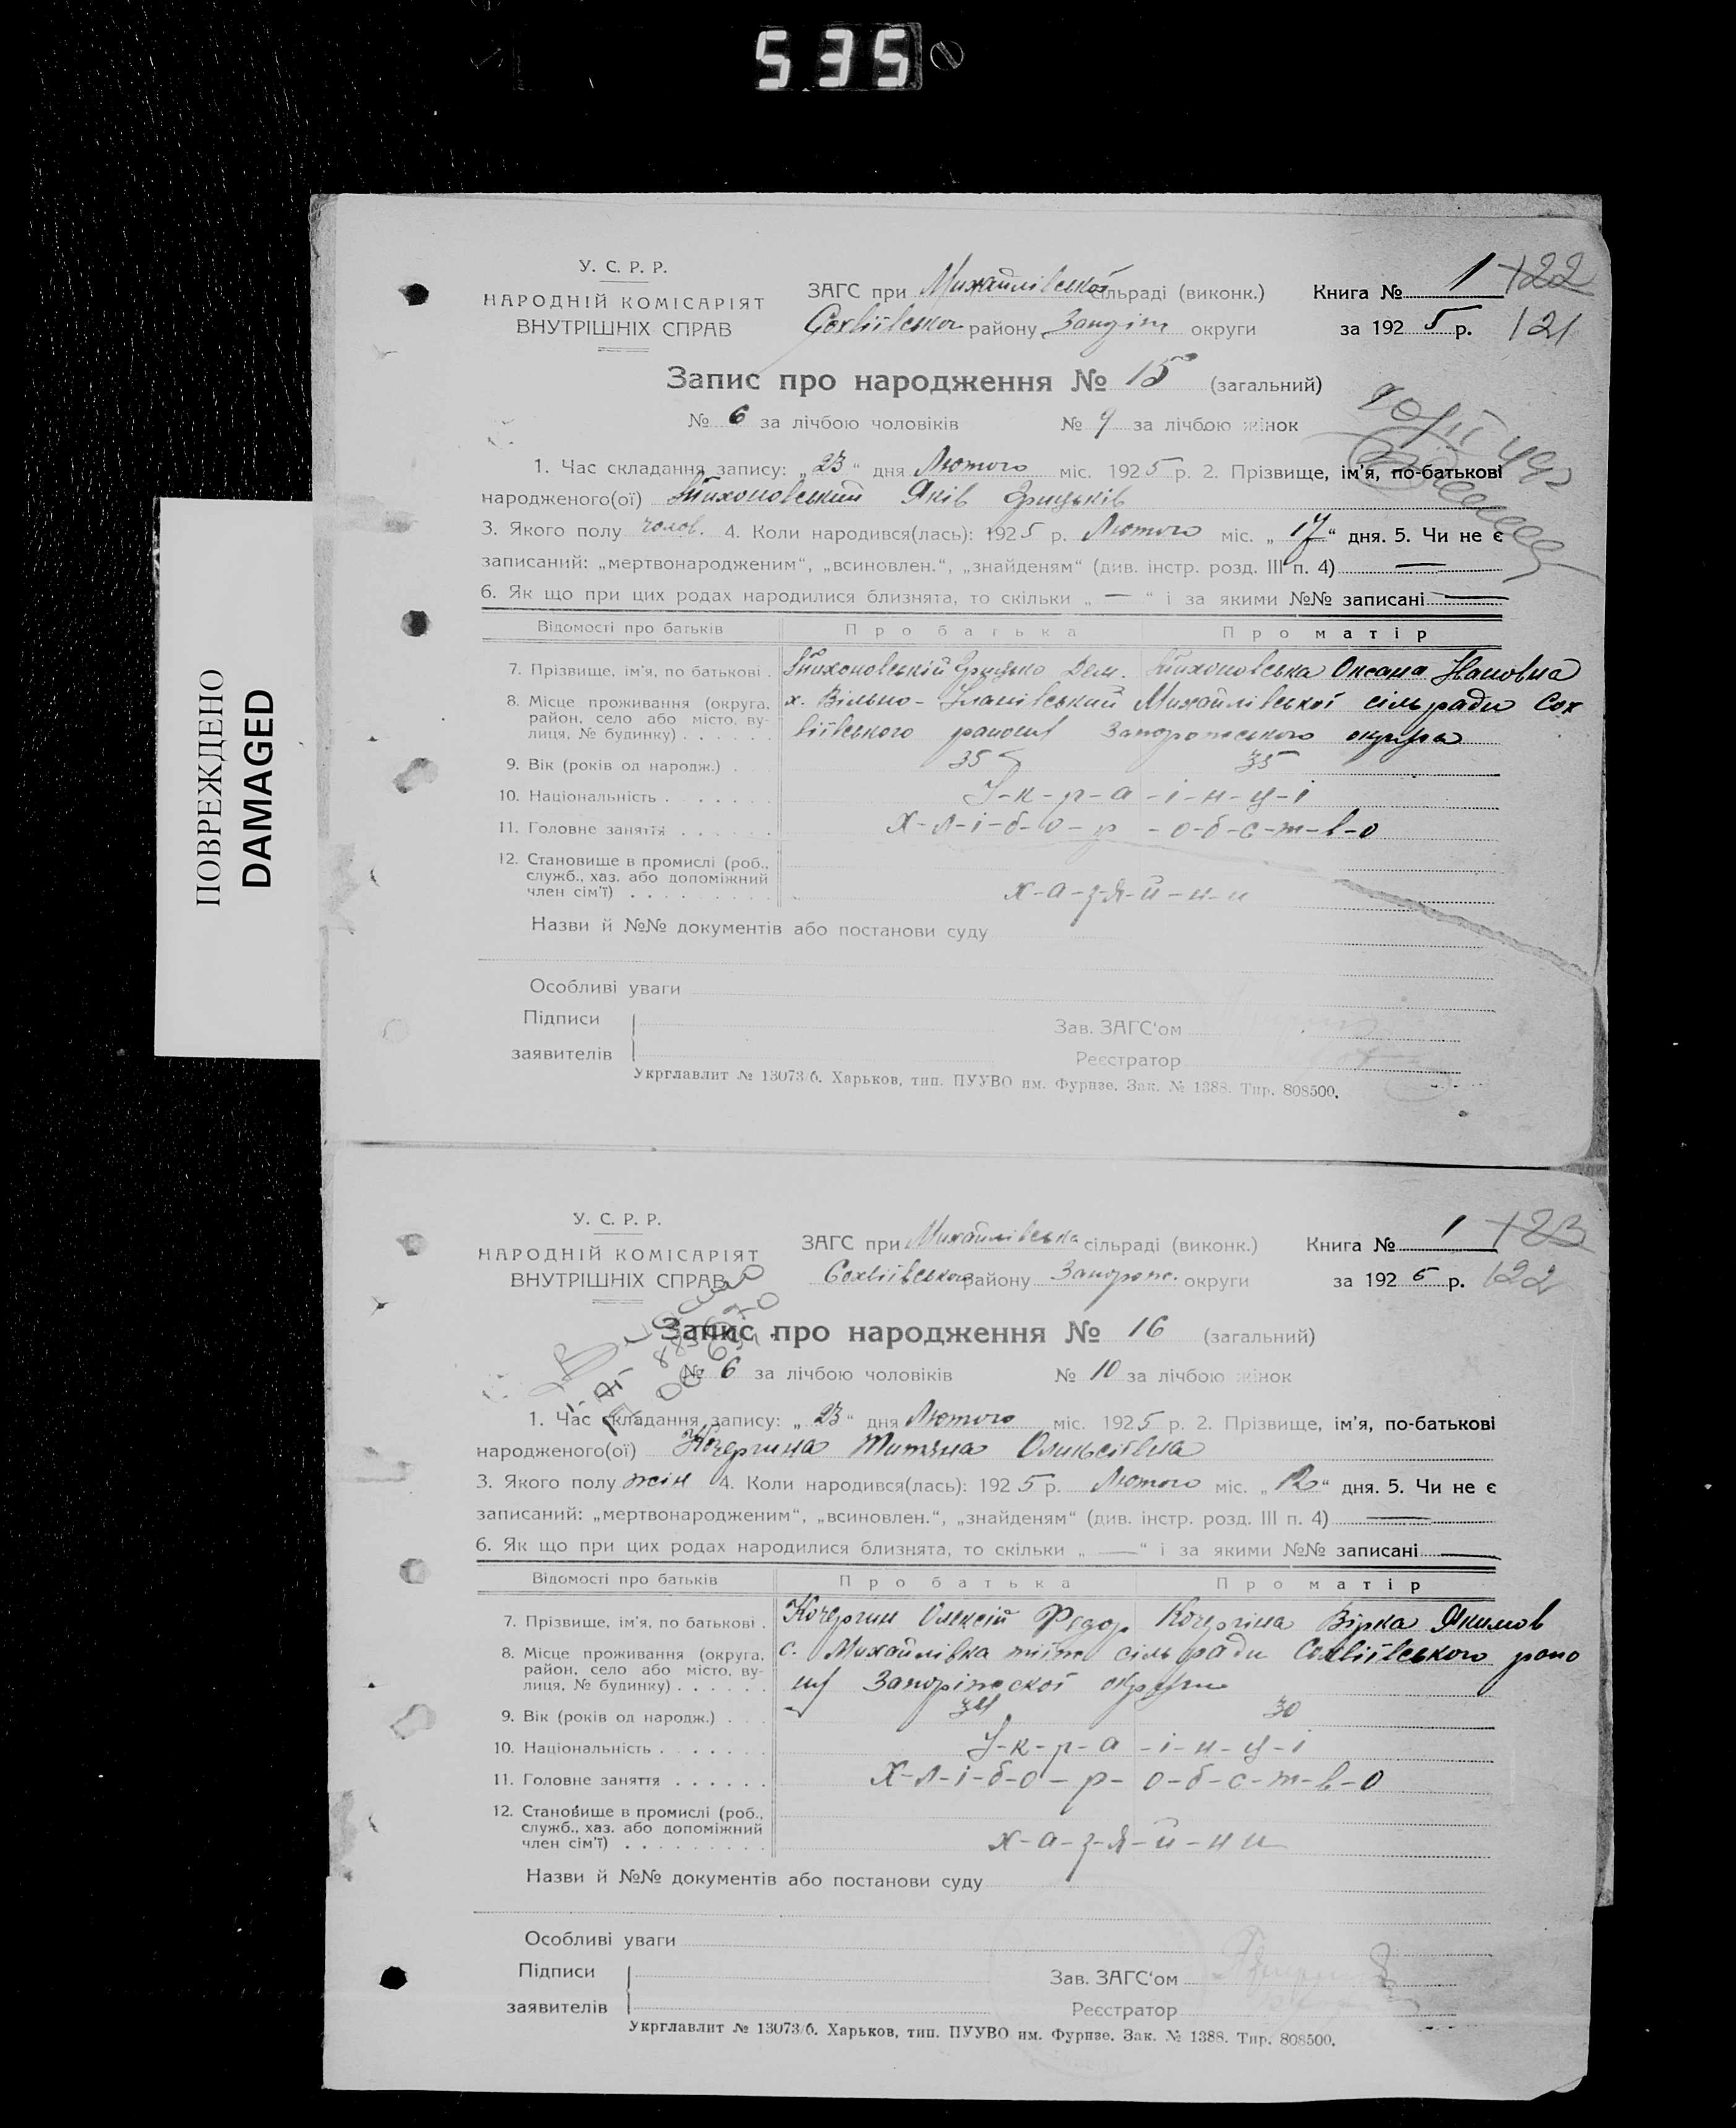 535
ПОВРЕЖДЕНО
DAMAGED
У. С. Р. Р.
НАРОДНІЙ КОМІСАРІЯТ
ВНУТРІШНІХ СПРАВ
ЗАГС при Михайлівської сільраді (виконк.)
району округи
Книга № 1 122
за 1925 р. 121
Запис про народження № 15 (загальний)
№ 6 за лічбою чоловіків № 9 за лічбою жінок
1. Час складання запису: „23“ дня Лютого міс. 1925 р. 2. Прізвище, ім'я, по-батькові
народженого(ої) Тихоновський Яків Грицьків
3. Якого полу чолов. 4. Коли народився(лась): 1925 р. Лютого міс. „17“ дня. 5. Чи не є
записаний: „мертвонародженим“, „всиновлен.“, „знайденям“ (див. інстр. розд. III п. 4) —
6. Як що при цих родах народилися близнята, то скільки „—“ і за якими №№ записані —
Відомості про батьків Про батька Про матір
7. Прізвище, ім'я, по батькові . Тихоновській Грицько Дем. Тихоновська Оксана
8. Місце проживання (округа, район, село або місто, вулиця, № будинку) . . . . . .
х. Вільно- Михайлівської сільради Сох
віївського Запорожського округа
9. Вік (років од народж.) . 35 35
10. Національність . . . . . . . У-к-р-а-і-н-ц-і
11. Головне заняття . . . . . . Х-л-і-б-о-р-о-б-с-т-в-о
12. Становище в промислі (роб., служб., хаз. або допоміжний член сім'ї) . . . . . . . . . х-а-з-я-й-н-и
Назви й №№ документів або постанови суду
Особливі уваги
Підписи
заявителів
Зав. ЗАГС'ом
Реєстратор
Укрглавлит № 13073/б. Харьков, тип. ПУУВО им. Фурнзе. Зак. № 1388. Тир. 808500.
У. С. Р. Р.
НАРОДНІЙ КОМІСАРІЯТ
ВНУТРІШНІХ СПРАВ
ЗАГС при Михайлівська сільраді (виконк.)
району Запорож. округи
Книга № 1 123
за 1925 р. 122
Запис про народження № 16 (загальний)
№ 6 за лічбою чоловіків № 10 за лічбою жінок
1. Час складання запису: „23“ дня Лютого міс. 1925 р. 2. Прізвище, ім'я, по-батькові
народженого(ої) Кочергина Титяна Оликсіївна
3. Якого полу жін 4. Коли народився(лась): 1925 р. Лютого міс. „12“ дня. 5. Чи не є
записаний: „мертвонародженим“, „всиновлен.“, „знайденям“ (див. інстр. розд. III п. 4) —
6. Як що при цих родах народилися близнята, то скільки „—“ і за якими №№ записані —
Відомості про батьків Про батька Про матір
7. Прізвище, ім'я, по батькові . Кочергин Олексій Федор Кочергіна Вірка Якимов
8. Місце проживання (округа, район, село або місто, вулиця, № будинку) . . . . . .
с. Михайлівка тіїж сільради Сохвіївського
Запоріжскої округи
9. Вік (років од народж.) . . . 34 30
10. Національність . . . . . . . У-к-р-а-і-н-ц-і
11. Головне заняття . . . . . . Х-л-і-б-о-р-о-б-с-т-в-о
12. Становище в промислі (роб., служб., хаз. або допоміжний член сім'ї) . . . . . . . . . х-а-з-я-й-н-и
Назви й №№ документів або постанови суду
Особливі уваги
Підписи
заявителів
Зав. ЗАГС'ом
Реєстратор
Укрглавлит № 13073/б. Харьков, тип. ПУУВО им. Фурнзе. Зак. № 1388. Тир. 808500.